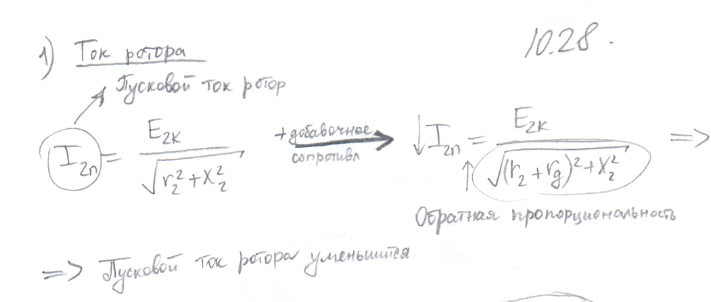 1) Ток ротора
10.28.
Пусковой ток ротор
I₂п = E₂к / √(r₂² + x₂²) + добавочное сопротивл → ↓ I₂п = E₂к / √((r₂ + rg)² + x₂²) =>
↑ Обратная пропорциональность
=> Пусковой ток ротора уменьшится.